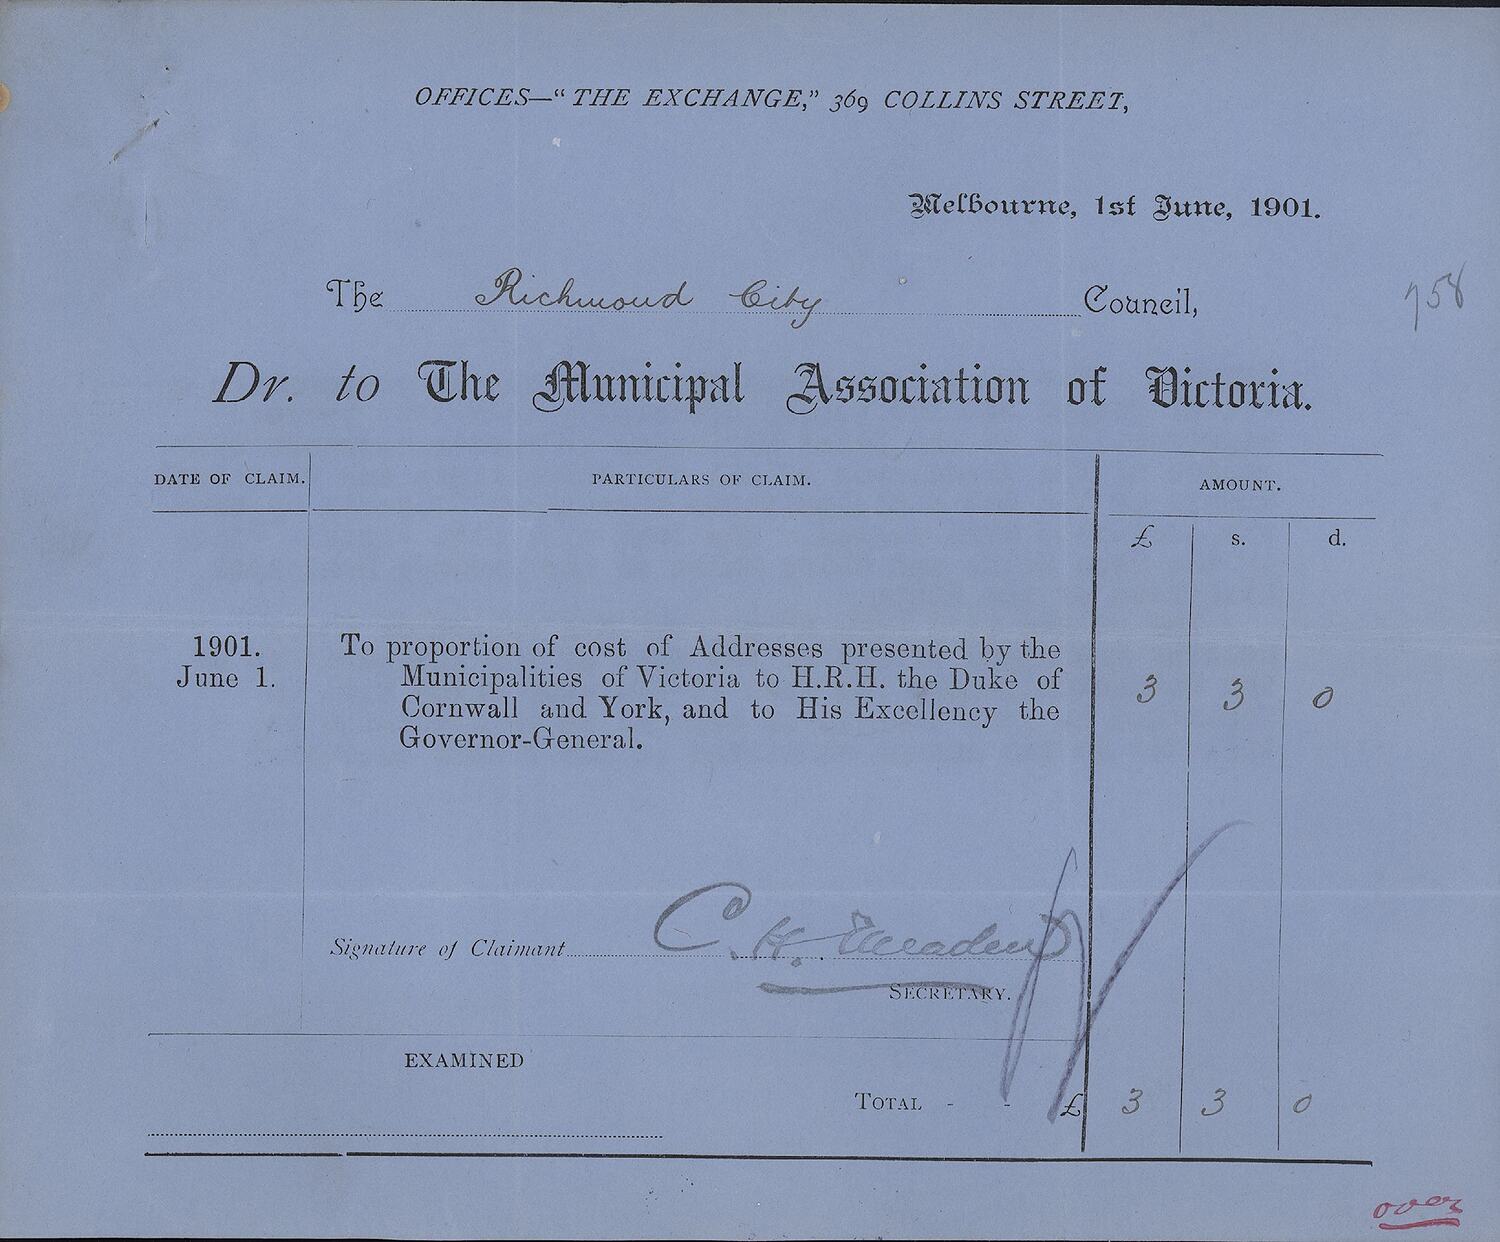 OFFICES—“THE EXCHANGE,” 369 COLLINS STREET,
Melbourne, 1st June, 1901.
The Richmond City Council,
758
Dr. to The Municipal Association of Victoria.
DATE OF CLAIM. PARTICULARS OF CLAIM. AMOUNT.
£ s. d.
1901.
June 1.
To proportion of cost of Addresses presented by the
Municipalities of Victoria to H.R.H. the Duke of
Cornwall and York, and to His Excellency the
Governor-General.
3 3 0
Signature of Claimant C. H.
SECRETARY.
EXAMINED
TOTAL - - £ 3 3 0
over